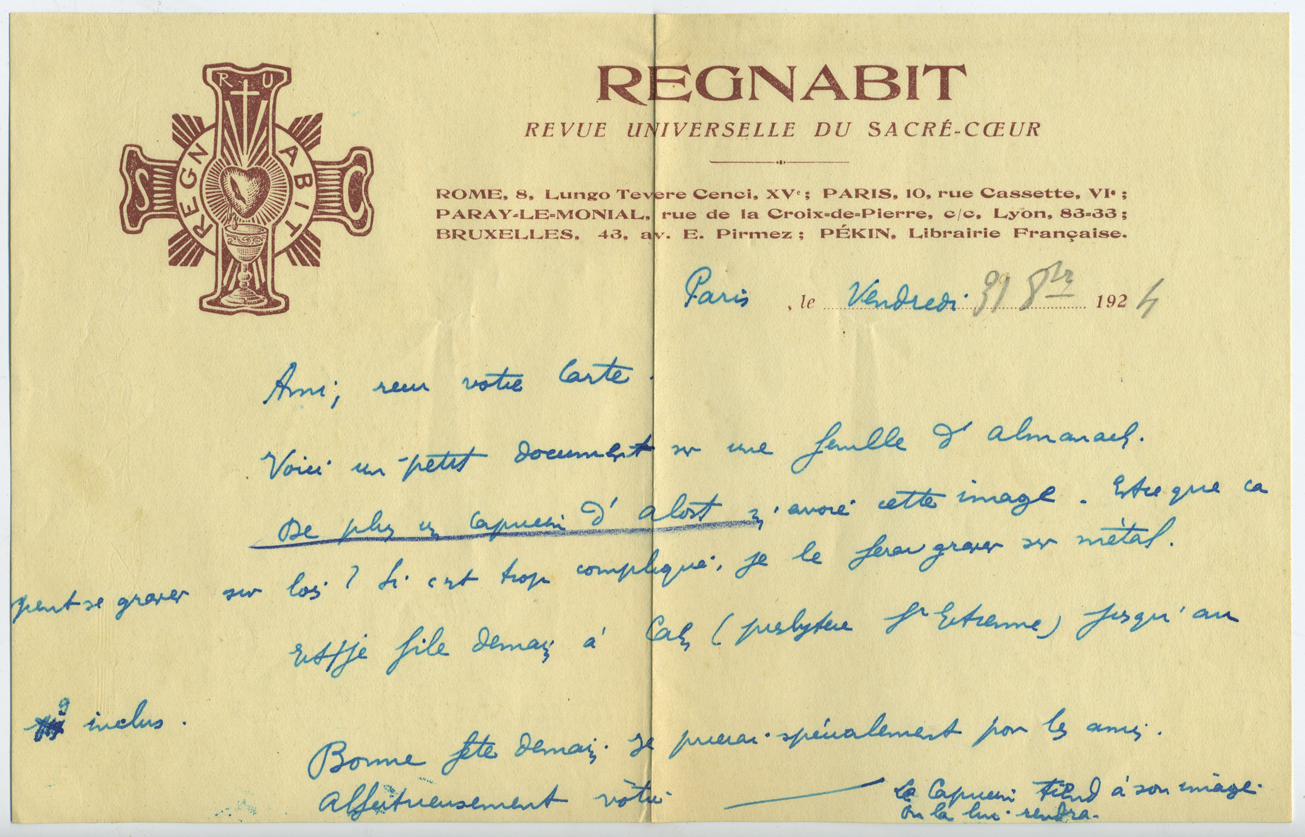 R U
S C
REGNABIT
REGNABIT
REVUE UNIVERSELLE DU SACRÉ-CŒUR
ROME, 8, Lungo Tevere Cenci, XVe; PARIS, 10, rue Cassette, VIe;
PARAY-LE-MONIAL, rue de la Croix-de-Pierre, c/c. Lyon, 83-33;
BRUXELLES, 43, av. E. Pirmez; PÉKIN, Librairie Française.
Paris , le Vendredi 31 8bre 1924
Ami, reçu votre carte.
Voici un petit document sur une feuille d'almanach.
De plus un capucin d'Alost m'envoie cette image. Est-ce que ça
peut se graver sur bois? Si c'est trop compliqué, je le ferai graver sur métal.
je file demain à Caen (presbytère St Etienne) jusqu'au
9 inclus.
Bonne fête demain. Je prierai spécialement pour les amis.
Affectueusement vôtre
Le Capucin tient à son image.
On la lui rendra.